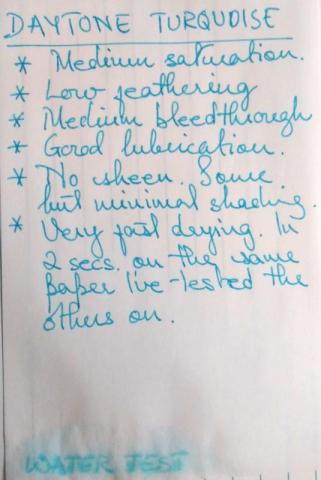 DAYTONE TURQUOISE
* Medium saturation.
* Low feathering
* Medium bleedthrough
* Good lubrication.
* No sheen. Some
but minimal shading.
* Very fast drying. In
2 secs. on the same
paper I've tested the
others on.
WATER TEST